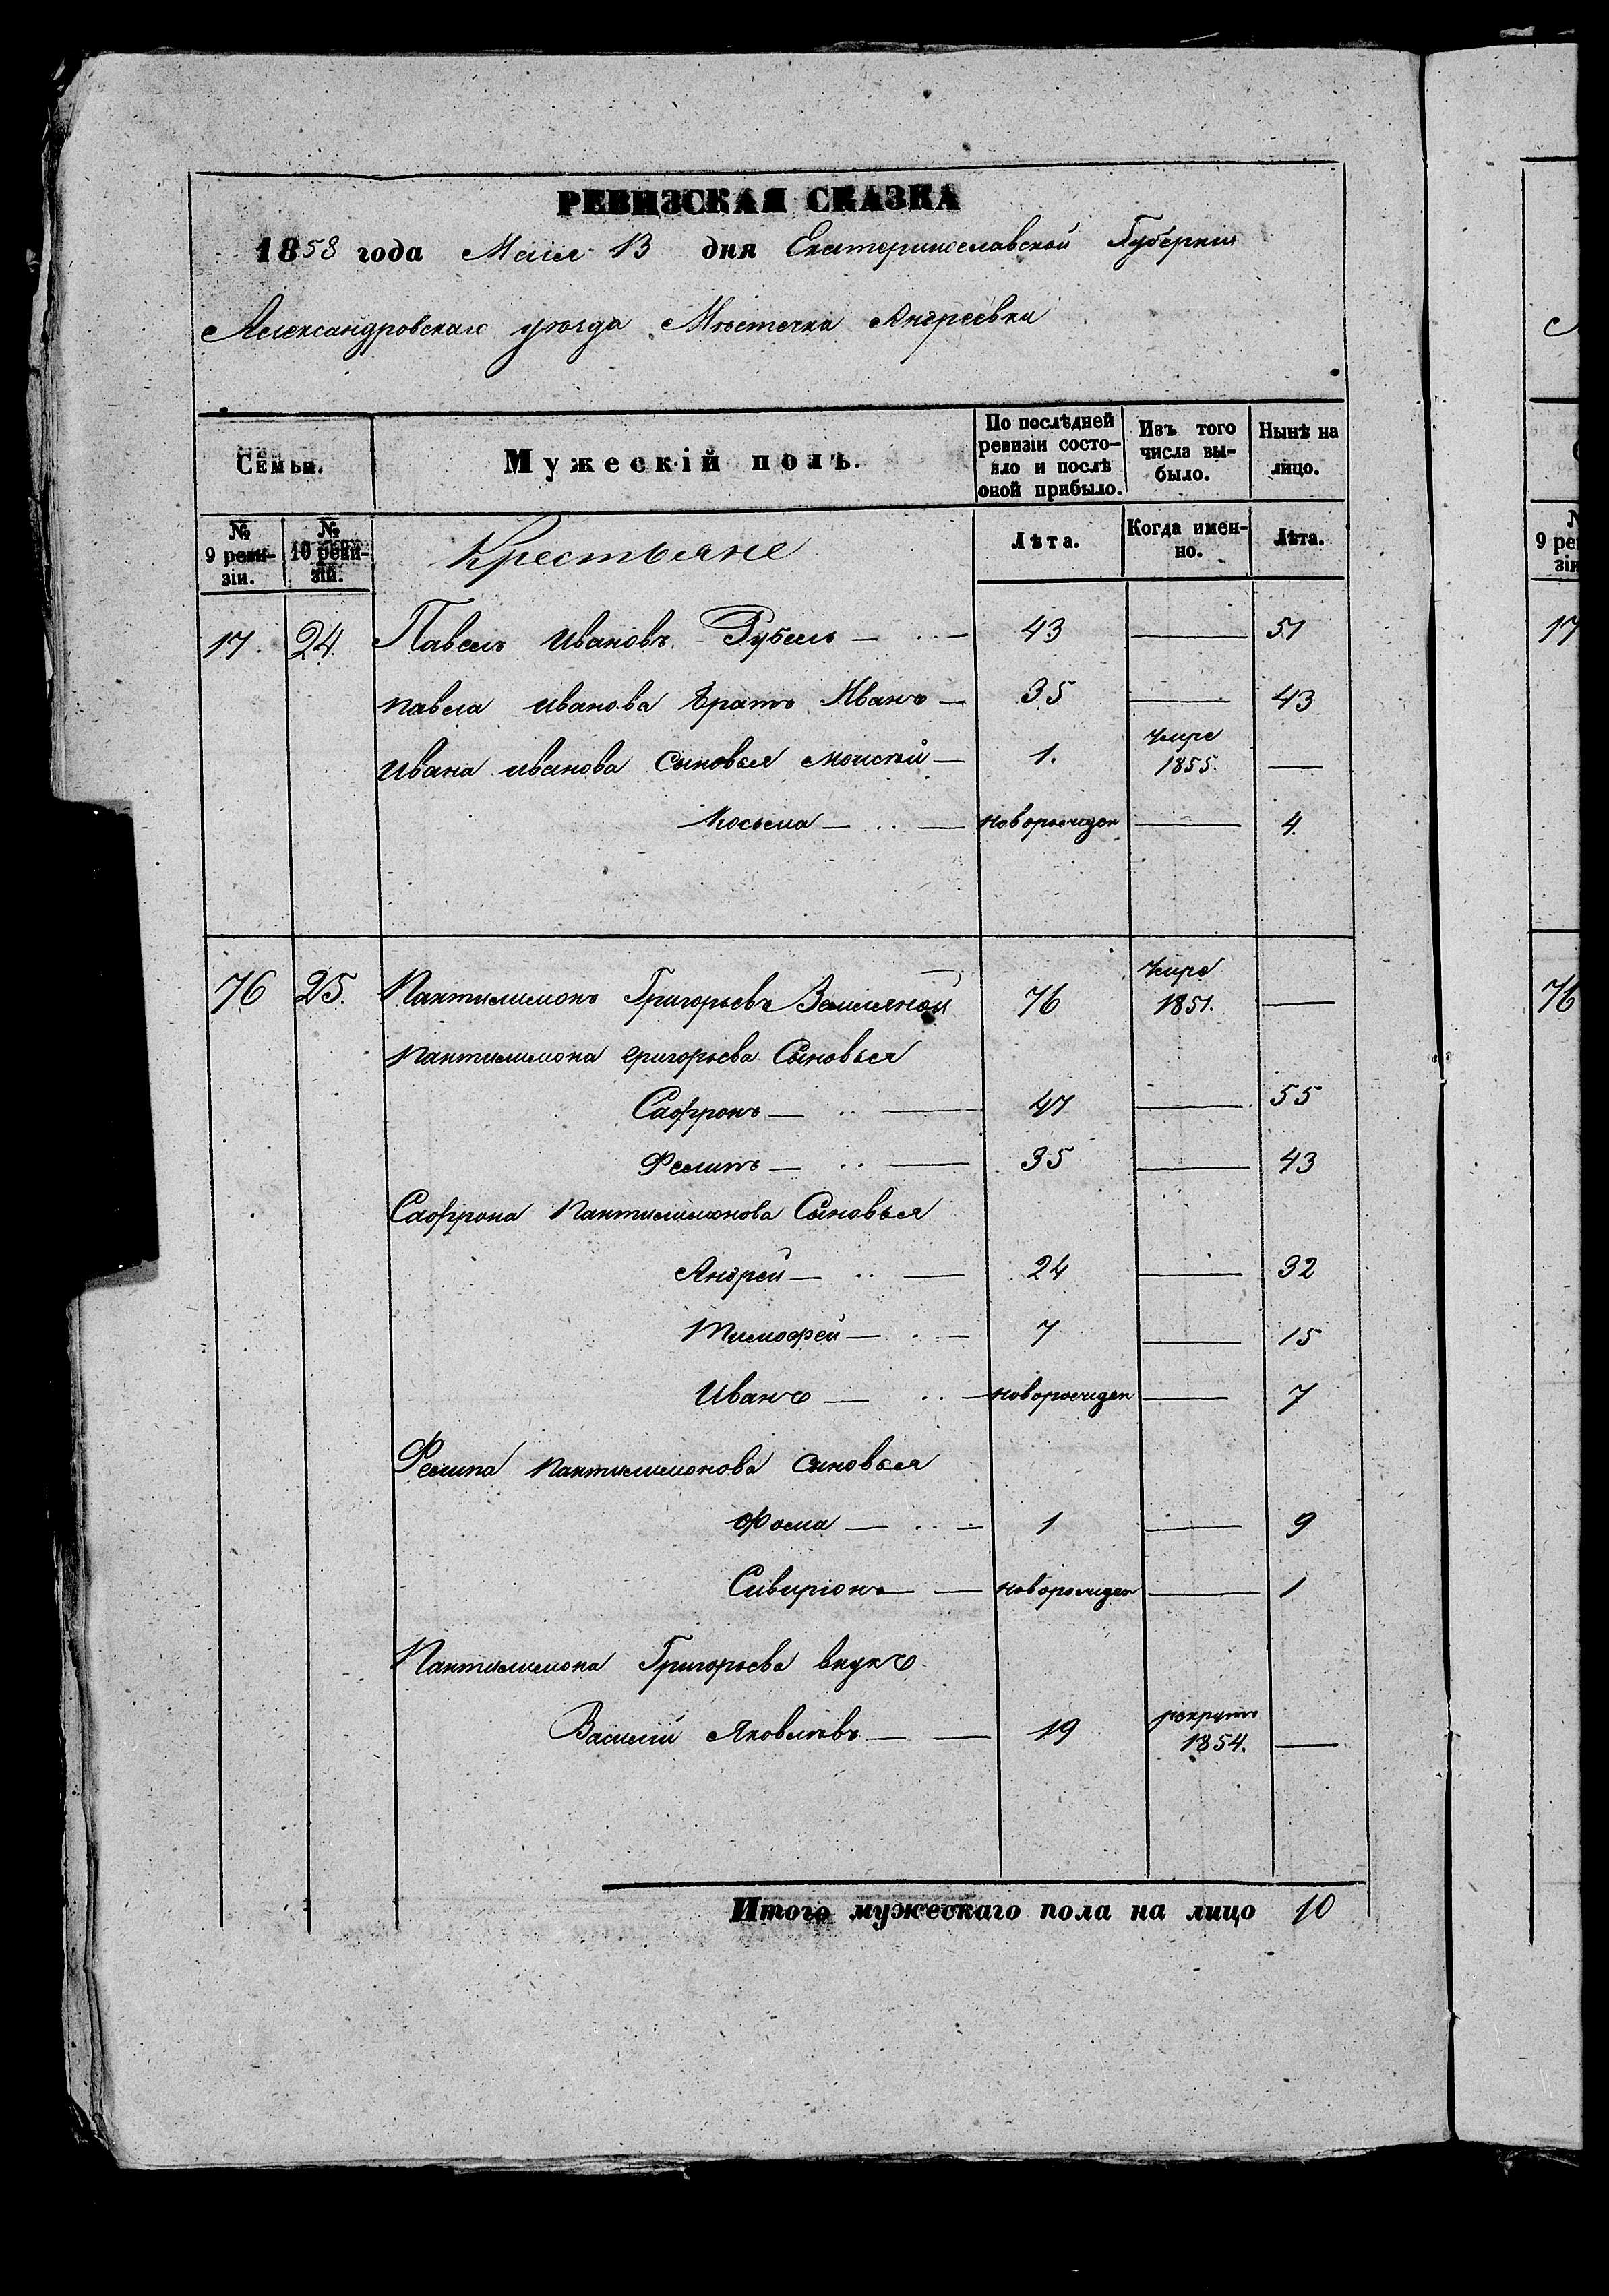 РЕВИЗСКАЯ СКАЗКА
1858 года Маия 13 дня Екатеринославской Губернии
Александровскаго уѣзда Мѣстечка Андреевки
Семьи. Мужескій полъ. По послѣдней ревизіи состояло и послѣ оной прибыло. Изъ того числа выбыло. Нынѣ на лицо.
№ 9 ревизіи. № 10 ревизіи. Крестьяне Лѣта. Когда именно. Лѣта.
17. 24. Павелъ Ивановъ Рубель — 43 — 51
Павела Иванова братъ Иванъ — 35 — 43
Ивана Иванова Сыновья Моисей — 1. Умре 1855. —
Косьма — новорожден — 4.
76 25. Пантилимонъ Григорьевъ Земляной 76 Умре 1851. —
Пантилимона Григорьева Сыновья
Сафронъ — 47 — 55
Филипъ — 35 — 43
Сафрона Пантилимонова Сыновья
Андрей — 24 — 32
Тимофей — 7 — 15
Иванъ — новорожден — 7
Филипа Пантилимонова Сыновья
Фома — 1 — 9
Сивиріонъ — новорожден — 1
Пантилимона Григорьева внукъ
Василий Яковлевъ — 19 рекрутъ 1854. —
Итого мужескаго пола на лицо 10
17
76
№ 9 ревизіи